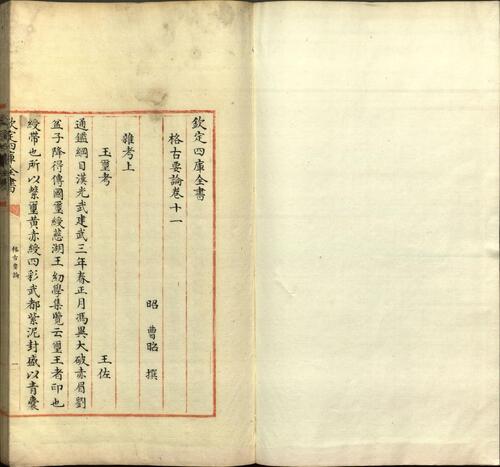 欽定四庫全書
格古要論卷十一
昭 曹昭 撰
雜考上
玉璽考 王佐
通鑑綱目漢光武建武三年春正月馮異大破赤眉劉
盆子降得傳國璽綬慈湖王幼學集覽云璽王者印也
綬帶也所以繫璽黃赤綬四彩武都紫泥封盛以青囊
欽定四庫全書
格古要論
一